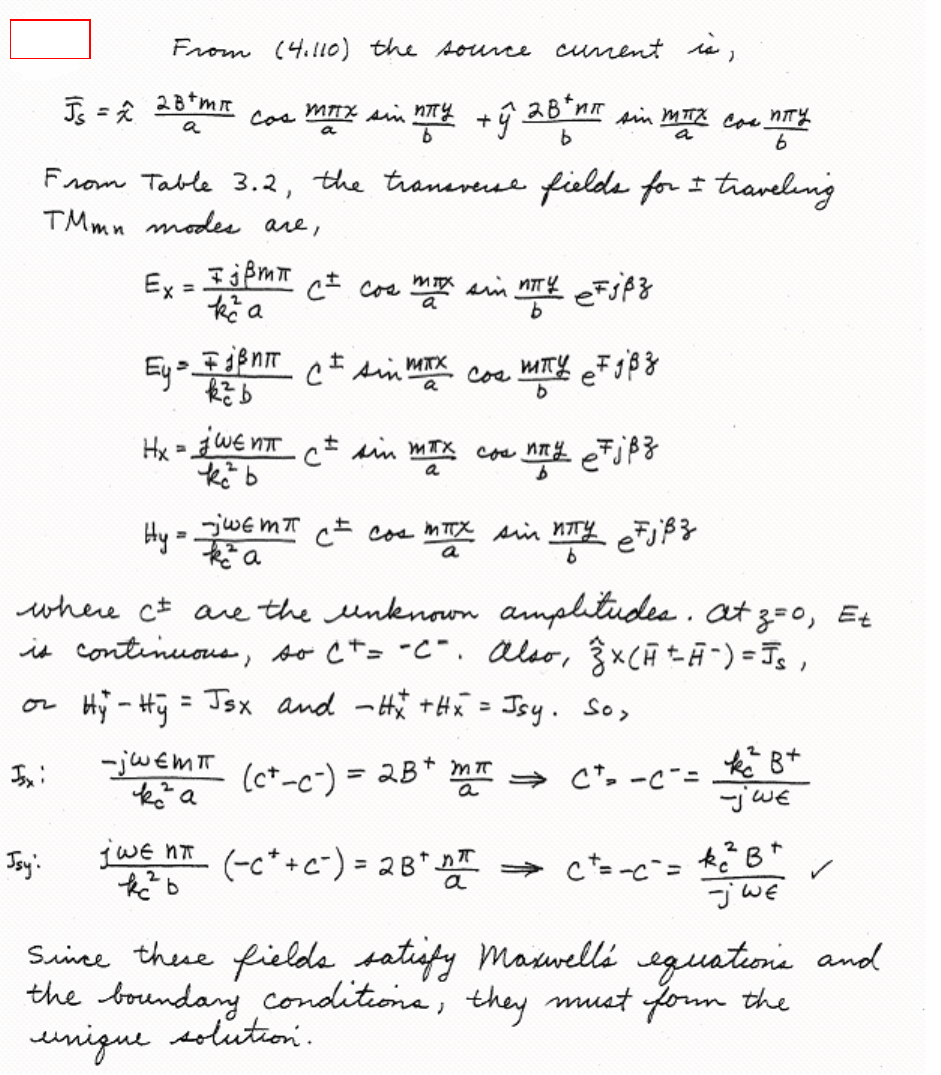 From (4.110) the source current is,
J̄s = x̂ 2B⁺mπ/a cos mπx/a sin nπy/b + ŷ 2B⁺nπ/b sin mπx/a cos nπy/b
From Table 3.2, the transverse fields for ± traveling
TMmn modes are,
Ex = ∓jβmπ/kc²a C± cos mπx/a sin nπy/b e^∓jβz
Ey = ∓jβnπ/kc²b C± sin mπx/a cos mπy/b e^∓jβz
Hx = jωϵnπ/kc²b C± sin mπx/a cos nπy/b e^∓jβz
Hy = -jωϵmπ/kc²a C± cos mπx/a sin nπy/b e^∓jβz
where C± are the unknown amplitudes. At z=0, Et
is continuous, so C⁺ = -C⁻. Also, ẑ×(H̄⁺-H̄⁻) = J̄s,
or Hy⁺ - Hy⁻ = Jsx and -Hx⁺ + Hx⁻ = Jsy. So,
Jsx: -jωϵmπ/kc²a (C⁺-C⁻) = 2B⁺ mπ/a ⇒ C⁺ = -C⁻ = kc²B⁺/-jωϵ
Jsy: jωϵnπ/kc²b (-C⁺+C⁻) = 2B⁺ nπ/a ⇒ C⁺ = -C⁻ = kc²B⁺/-jωϵ ✓
Since these fields satisfy Maxwell's equations and
the boundary conditions, they must form the
unique solution.